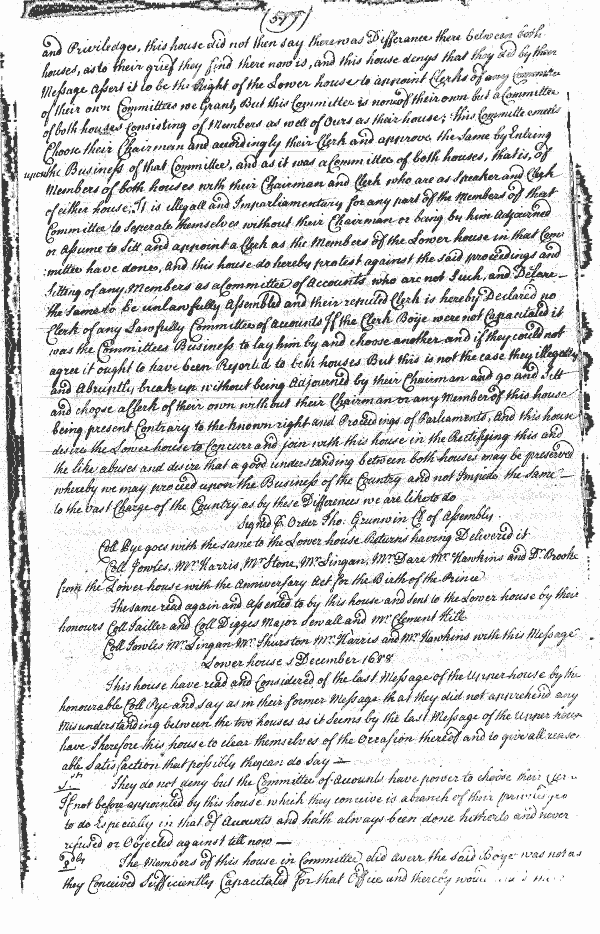 (577)
and Priviledges, this house did not then say there was Differance there between both
houses, as to their grief they find there now is, and this house denys that they did by their
Message assert it to be the Right of the Lower house to appoint Clerks of any committee
of their own Committees we Grant, But this Committee is none of their own but a Committee
of both houses Consisting of Members as well of Ours as their house; this Committe
Choose their Chairman and accordingly their Clerk and approve the Same by Entring
upon the Business of that Committee, and as it was a Committee of both houses, that is, of
Members of both houses with their Chairman and Clerk who are as Speaker and Clerk
of either house; It is illegall and Imparliamentary for any part of the Members of that
Committee to Seperate themselves without their Chairman or being by him Adjourned
or Assume to Sitt and appoint a Clerk as the Members of the Lower house in that Com
mittee have done, And this house do hereby protest against the said proceedings and
Sitting of any Members as a Committee of Accounts who are not Such, and Delare
the same to be unlawfully Assembled and their reputed Clerk is hereby Declared no
Clerk of any Lawfully Committee of Accounts If the Clerk Boije were not Capacitated it
was the Committees Business to lay him by and choose another and if they could not
agree it ought to have been Reported to both houses But this is not the case they illegally
and Abruptly break up without being Adjourned by their Chairman and go and Sitt
and choose a Clerk of their own without their Chairman or any Member of this house
being present Contrary to the known right and Proceedings of Parliaments, And this house
desire the Lower house to Concurr and join with this house in the Rectifying this and
the like abuses and desire that a good understanding between both houses may be preserved
whereby we may proceed upon the Business of the Country and not Impede the same
to the vast Charge of the Country as by these Differences we are like to do
Signed p. Order Tho: Grunwin Cl. of Assembly.
Coll Pye goes with the same to the Lower house Returns having Delivered it
Coll Jowles, Mr. Harris, Mr. Stone, Mr. Lingan, Mr. Dare Mr. Hawkins and Dr. Brooke
from the Lower house with the Anniversary Act for the Birth of the Prince
The same read again and Assented to by this house and sent to the Lower house by their
honours Coll Tailler and Coll Digges Major Sewall and Mr. Clement Hill
Coll Jowles Mr. Lingan Mr. Thurston Mr. Harris and Mr. Hawkins with this Message
Lower house 5 December 1688
This house have read and Considered of the last Message of the Upper house by the
honourable Coll Pye and say as in their former Message that they did not apprehend any
misunderstanding between the two houses as it seems by the last Message of the Upper house
have Therefore this house to clear themselves of the Occasion thereof and to give all reason
able Satisfaction that possibly they can do Say
1st. They do not deny but the Committee of Accounts have power to choose their
If not before appointed by this house which they conceive is a branch of their
to do Especially in that of Accounts and hath always been done hitherto and never
refused or Objected against till now
2dly The Members of this house in Committee did averr the said Boije was not as
they Conceived Sufficiently Capacitated for that Office and thereby